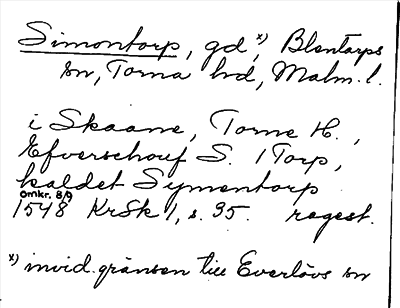 Simontorp, gd,ˣ⁾ Blentarps
sn, Torna hd, Malm. l.
i Skaane, Torne H.,
Efverschouf S. 1 Torp,
kaldet Symentorp
omkr. 8/9
1548 KrSk 1, s. 95. regest.
ˣ⁾ invid gränsen till Everlövs sn